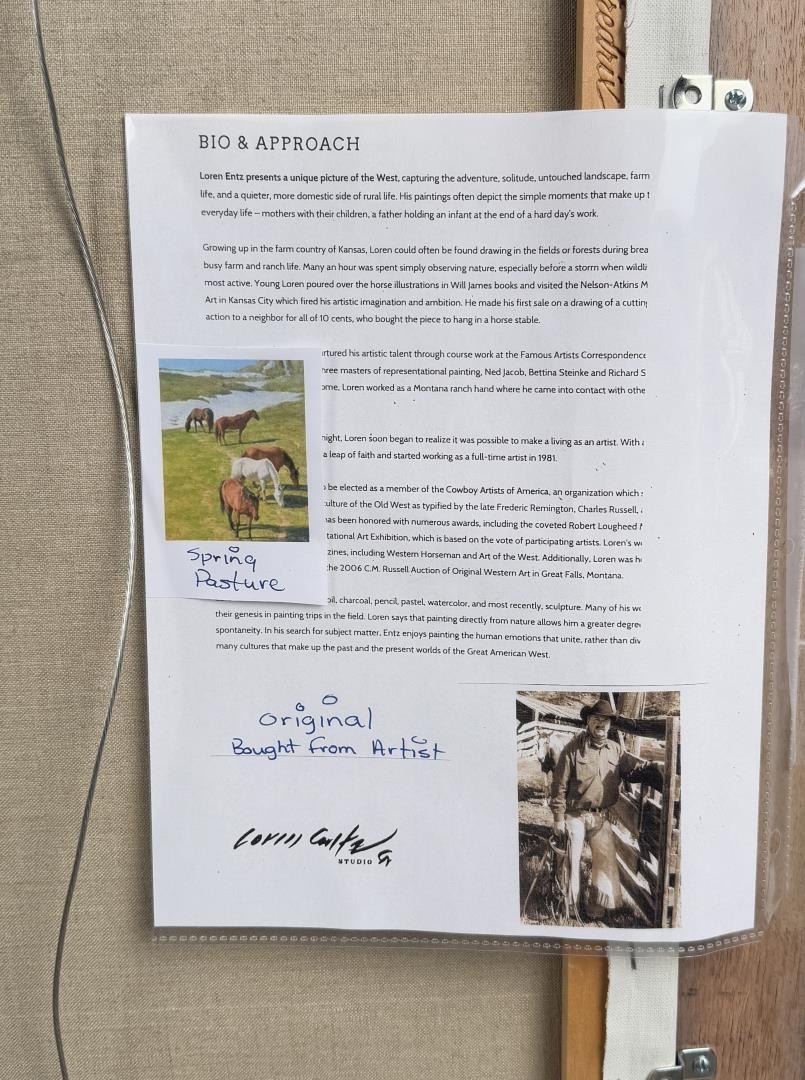 redrix
BIO & APPROACH
Loren Entz presents a unique picture of the West, capturing the adventure, solitude, untouched landscape, farm
life, and a quieter, more domestic side of rural life. His paintings often depict the simple moments that make up t
everyday life – mothers with their children, a father holding an infant at the end of a hard day's work.
Growing up in the farm country of Kansas, Loren could often be found drawing in the fields or forests during brea
busy farm and ranch life. Many an hour was spent simply observing nature, especially before a storm when wildli
most active. Young Loren poured over the horse illustrations in Will James books and visited the Nelson-Atkins M
Art in Kansas City which fired his artistic imagination and ambition. He made his first sale on a drawing of a cutting
action to a neighbor for all of 10 cents, who bought the piece to hang in a horse stable.
rtured his artistic talent through course work at the Famous Artists Correspondence
hree masters of representational painting, Ned Jacob, Bettina Steinke and Richard S
ome, Loren worked as a Montana ranch hand where he came into contact with othe
night, Loren soon began to realize it was possible to make a living as an artist. With a
a leap of faith and started working as a full-time artist in 1981.
be elected as a member of the Cowboy Artists of America, an organization which
culture of the Old West as typified by the late Frederic Remington, Charles Russell,
has been honored with numerous awards, including the coveted Robert Lougheed
tational Art Exhibition, which is based on the vote of participating artists. Loren's w
zines, including Western Horseman and Art of the West. Additionally, Loren was h
the 2006 C.M. Russell Auction of Original Western Art in Great Falls, Montana.
oil, charcoal, pencil, pastel, watercolor, and most recently, sculpture. Many of his wo
their genesis in painting trips in the field. Loren says that painting directly from nature allows him a greater degre
spontaneity. In his search for subject matter, Entz enjoys painting the human emotions that unite, rather than div
many cultures that make up the past and the present worlds of the Great American West.
Spring
Pasture
Original
Bought from Artist
Loren Entz
STUDIO